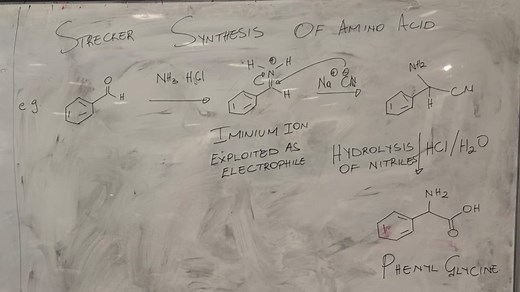 STRECKER SYNTHESIS OF AMINO ACID
e g
O
H
NH3 HCl
H N H
H
Na CN
NH2
CN
H
IMINIUM ION
EXPLOITED AS
ELECTROPHILE
HYDROLYSIS
OF NITRILES
HCl/H2O
NH2
OH
O
PHENYL GLYCINE